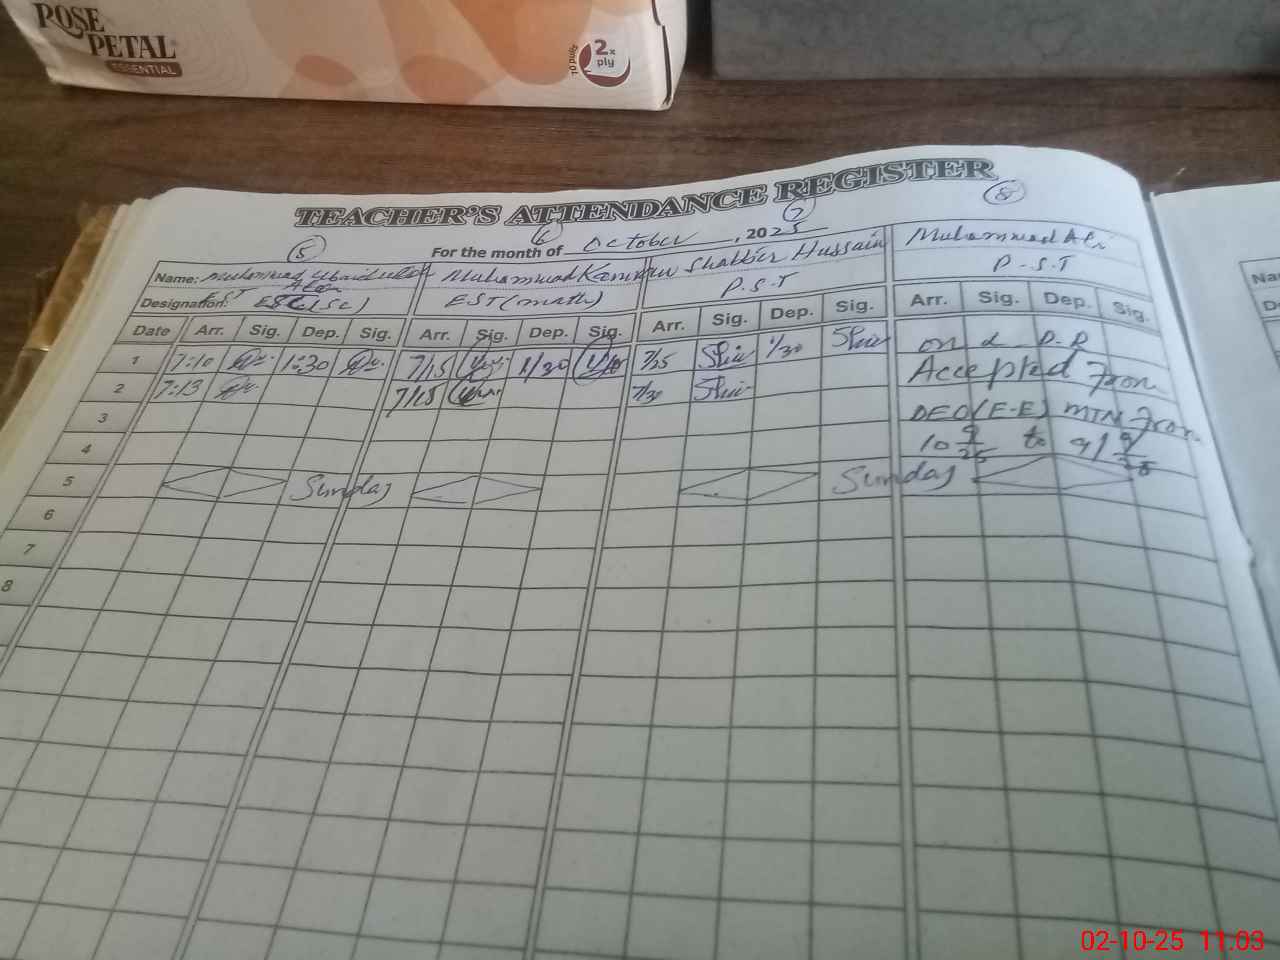 ROSE
PETAL
ESSENTIAL
10 pulls
2x
ply
TEACHER'S ATTENDANCE REGISTER
5 6 7 8
For the month of October, 2025
Name: Muhammad Muhammad Kamran Shabbir Hussain Muhammad Ali
Designation: EST (Sc) EST (math) P.S.T P-S.T
Date Arr. Sig. Dep. Sig. Arr. Sig. Dep. Sig. Arr. Sig. Dep. Sig. Arr. Sig. Dep. Sig.
1 7:10 1:30 7/15 1/30 7/25 1/30 on L.P.R
2 7:13 7/15 7/30 Accepted From
3 DEO(E-E) MTN From
4 10 9/25 to 9/
5 Sunday Sunday
6
7
8
Na
D
02-10-25 11:03